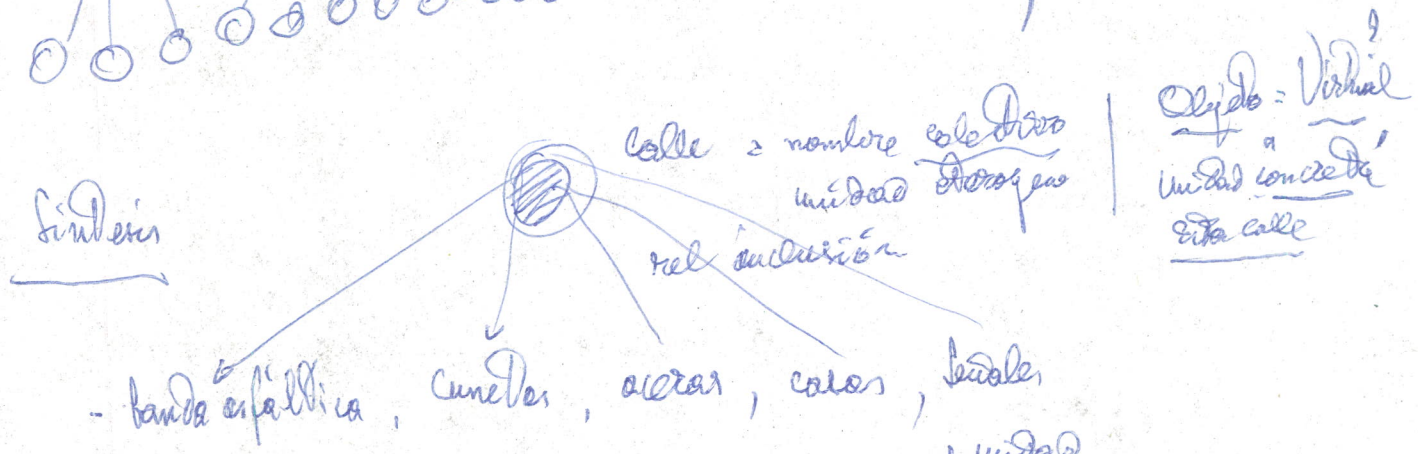 calle = nombre colectivo
unidad eterogéneo
rel inclusión
Objeto = Virtual?
unidad concreta
esta calle
Síntesis
- banda asfáltica, cunetas, aceras, casas, señales
unidad